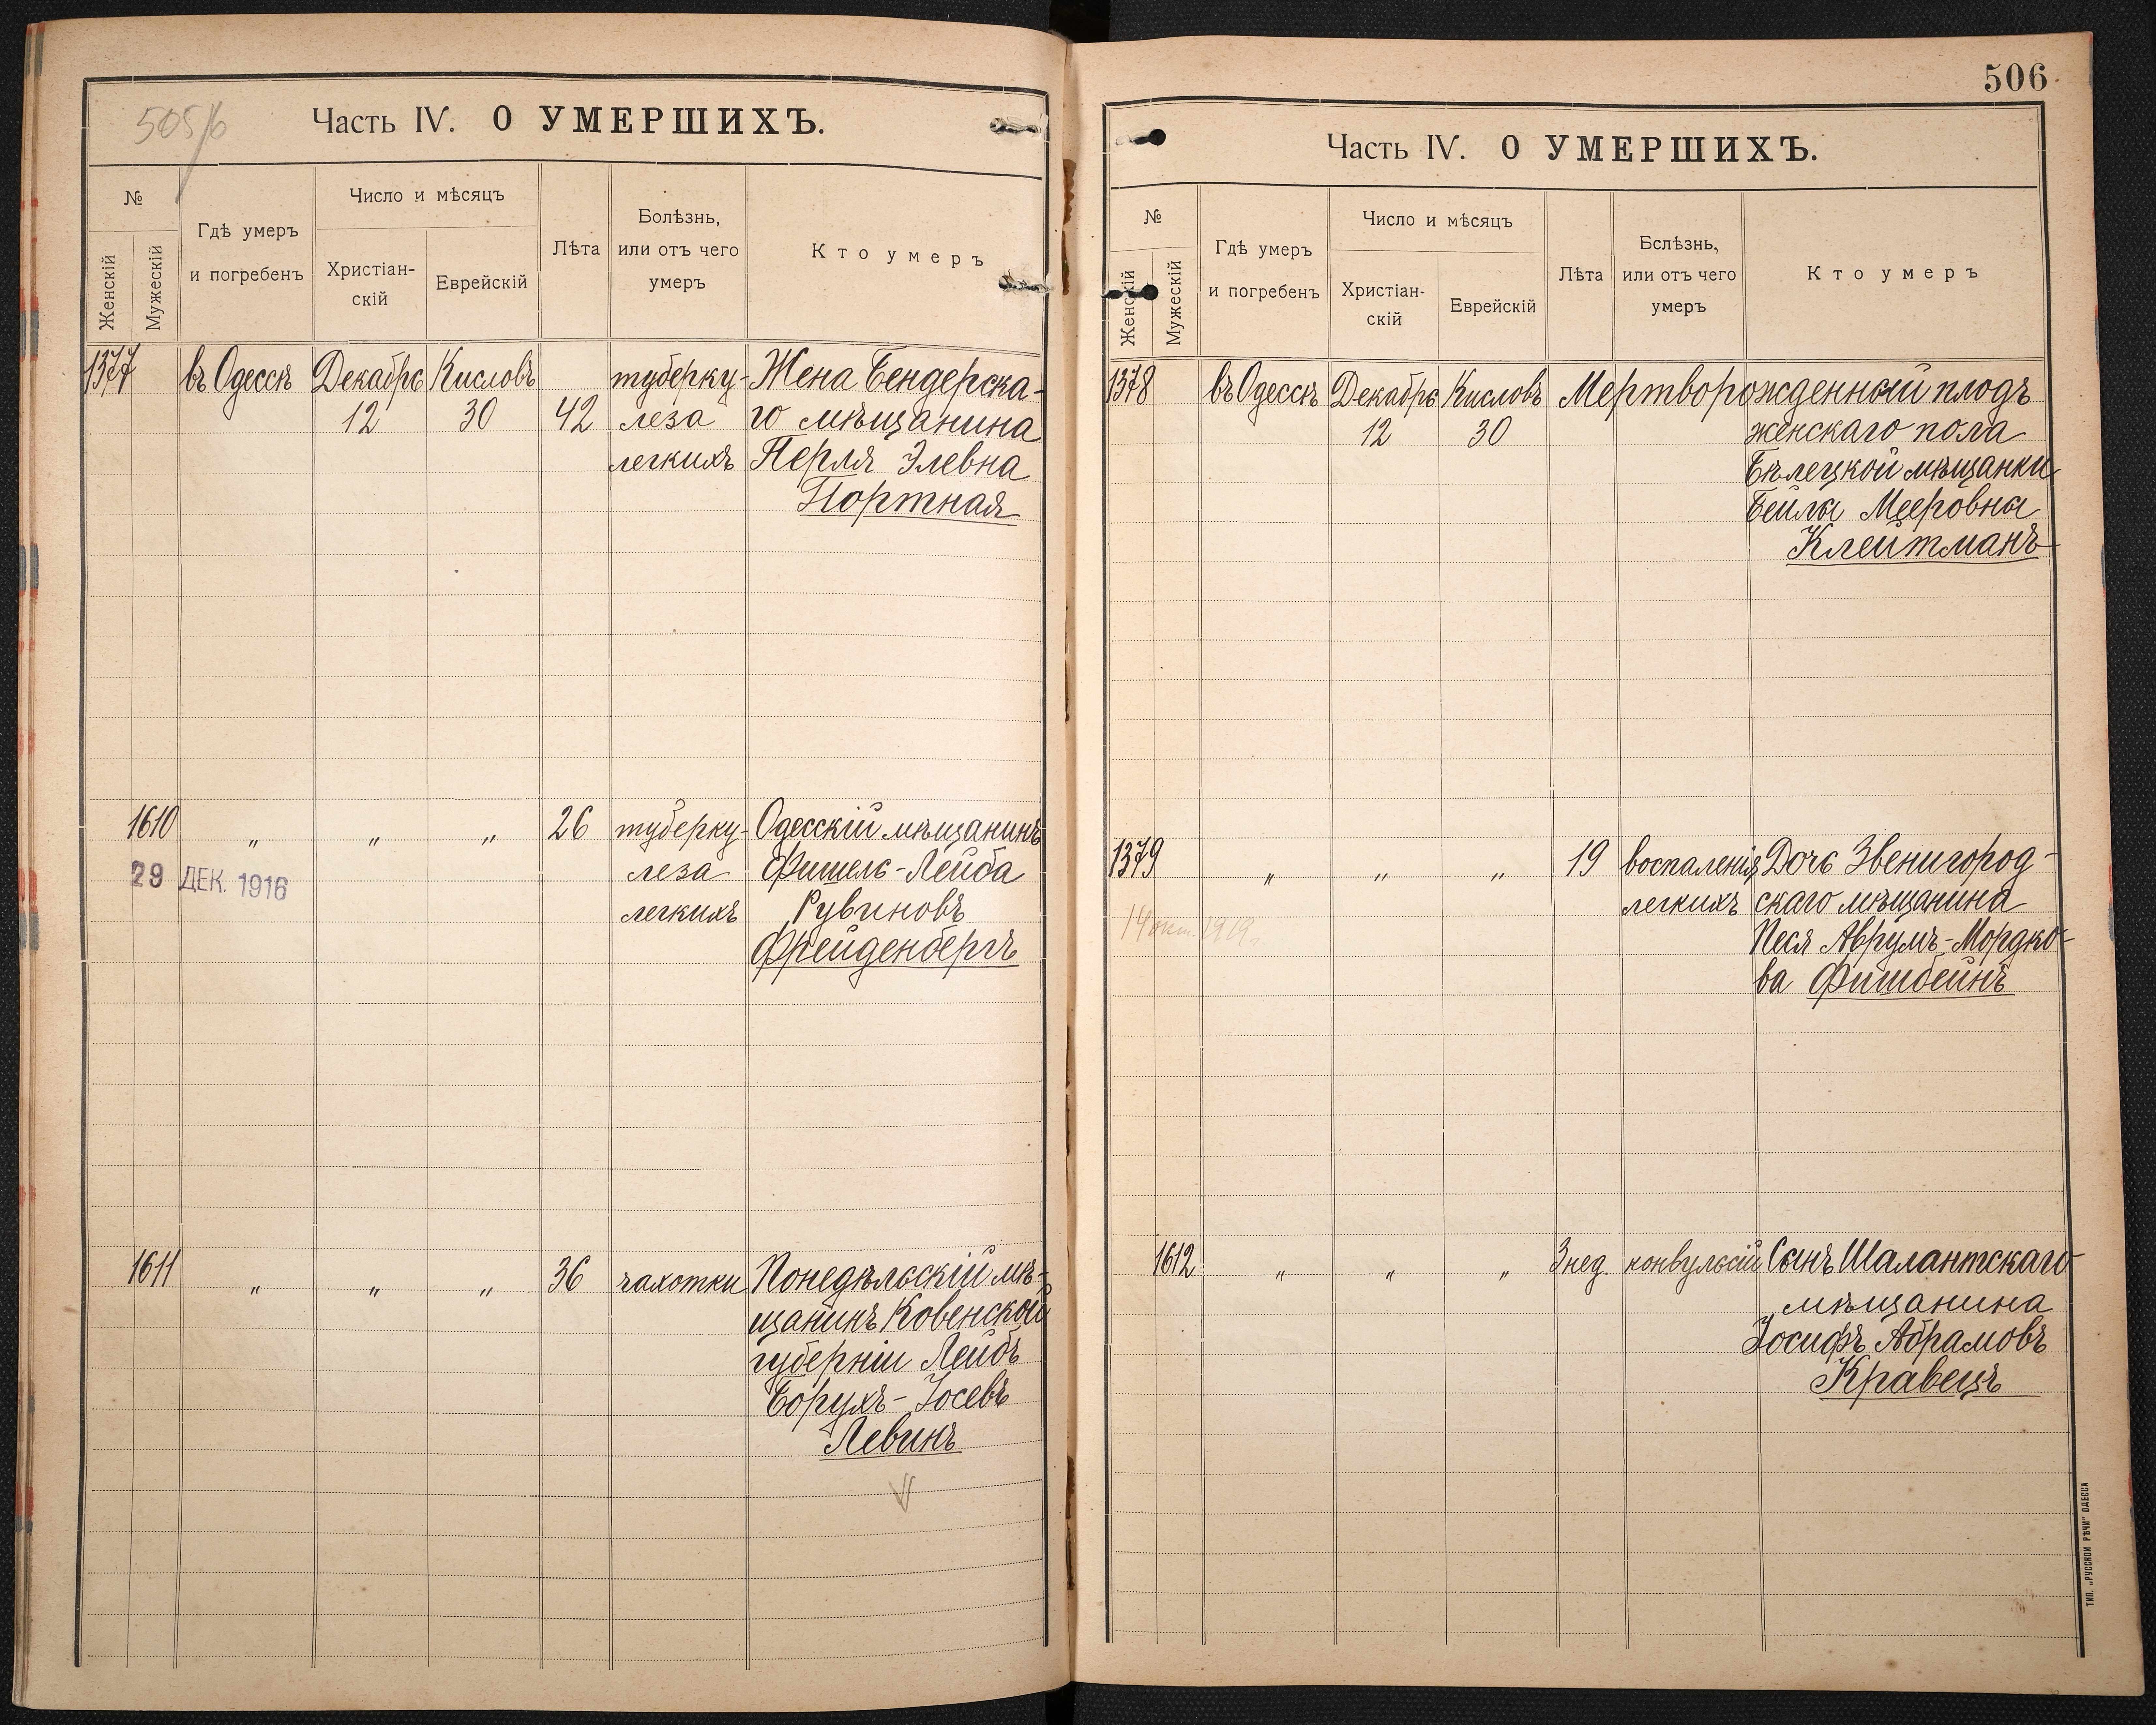 505/6
Часть IV. О УМЕРШИХЪ.
№
Женскій
Мужескій
Гдѣ умеръ
и погребенъ
Число и мѣсяцъ
Христіан-
скій
Еврейскій
Лѣта
Болѣзнь,
или отъ чего
умеръ
Кто умеръ
1377 въ Одессѣ Декабрь Кисловъ туберку- Жена Бендерска-
12 30 42 леза го мѣщанина
легкихъ Перля Элевна
Портная
1610 „ „ „ 26 туберку- Одесскій мѣщанинъ
29 ДЕК. 1916 леза Фишель-Лейба
легкихъ Рувиновъ
Фрейденбергъ
1611 „ „ „ 36 чахотки Понедѣльскій мѣ-
щанинъ Ковенской
губерніи Лейбъ
Борухъ-Іосевъ
Левинъ
506
Часть IV. О УМЕРШИХЪ.
№
Женскій
Мужескій
Гдѣ умеръ
и погребенъ
Число и мѣсяцъ
Христіан-
скій
Еврейскій
Лѣта
Бслѣзнь,
или отъ чего
умеръ
Кто умеръ
1378 въ Одессѣ Декабрь Кисловъ Мертворожденный плодъ
12 30 женскаго пола
Бѣлецкой мѣщанки
Бейлы Мееровны
Клейтманъ
1379 „ „ „ 19 воспаленія Дочь Звенигород-
легкихъ скаго мѣщанина
14 окт. 1919г. Песя Аврумъ-Мордко-
ва Фишбейнъ
1612 „ „ „ 3 нед. конвульсій Сынъ Шалантскаго
мѣщанина
Іосифъ Абрамовъ
Кравецъ
ТИП. „РУССКОЙ РѢЧИ" ОДЕССА